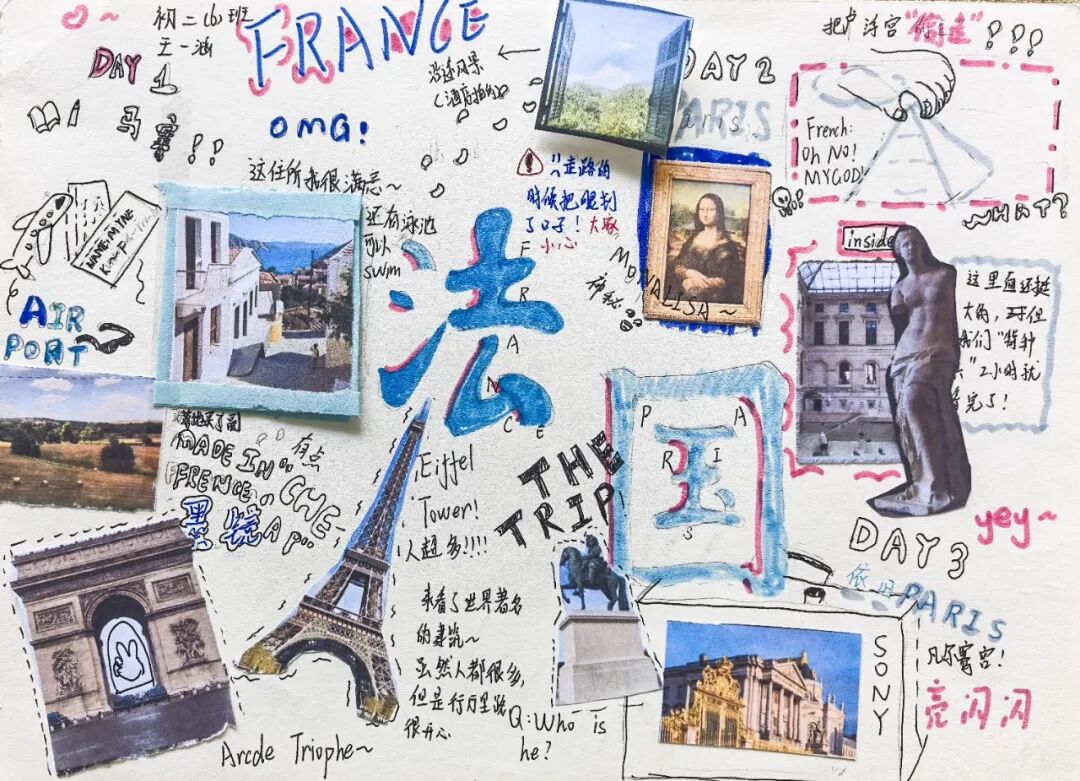 初二(6)班
王一涵
FRANCE
DAY 1
马赛!!
OMG!
沿途风景
(酒店拍的)
这住所我很满意~
还有泳池
可以
swim
AIR
PORT
MADE IN
FRENCE"
有点
"CHE-
AP"
墨镜
Arcde Triophe~
法
FRANCE
国
PARIS
THE
TRIP
Eiffel
Tower!
人超多!!!!
来看了世界著名
的建筑~
虽然人都很多,
但是行万里路
很开心
Q: Who is
he?
DAY 2
PARIS
走路的
时候把腿划
了口子!大家
小心
MONALISA~
把卢浮宫"偷走"!!!
French:
Oh No!
MY GOD!
WHAT?
inside
这里面还挺
大的,
我们"特种
兵"2小时就
完了!
yey~
DAY3
依旧PARIS
凡尔赛宫!
亮闪闪
SONY